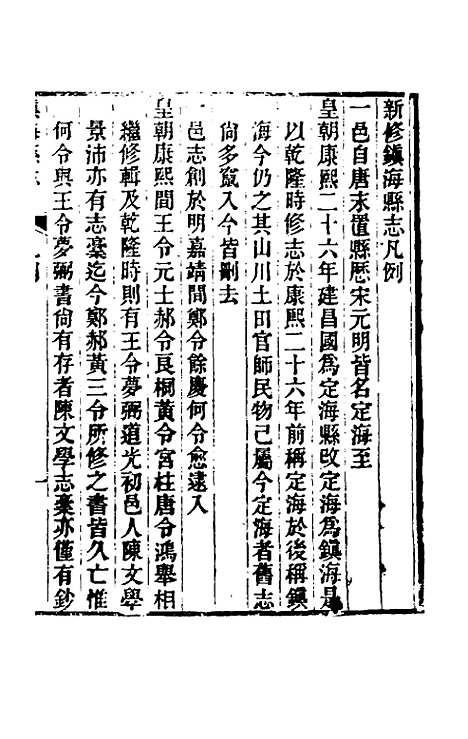 新修鎮海縣志凡例
一邑自唐末置縣歷宋元明皆名定海至
皇朝康熙二十六年建昌國爲定海縣改定海爲鎮海是
以乾隆時修志於康熙二十六年前稱定海於後稱鎮
海今仍之其山川土田官師民物已屬今定海者舊志
尚多竄入今皆刪去
一邑志創於明嘉靖間鄭令餘慶何令愈逮入
皇朝康熙間王令元士郝令良桐黃令宮柱唐令鴻舉相
繼修輯及乾隆時則有王令夢弼道光初邑人陳文學
景沛亦有志稾迄今鄭郝黃三令所修之書皆久亡惟
何令與王令夢弼書尙有存者陳文學志稾亦僅有鈔
鎮海縣志
凡例
一